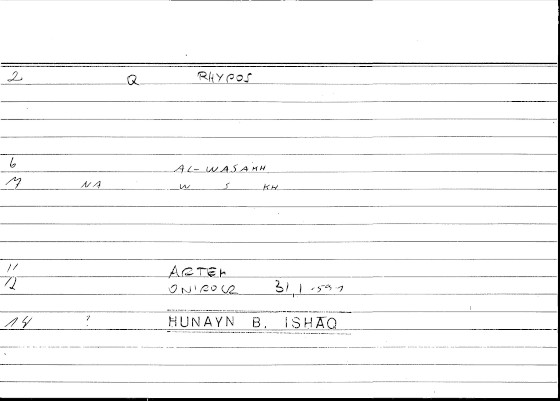 2 Q RHYPOS
6 AL-WASAKH
7 NA W S KH
11 ARTEM
12 ONIROCR 31,1
14 ? HUNAYN B. ISHAQ